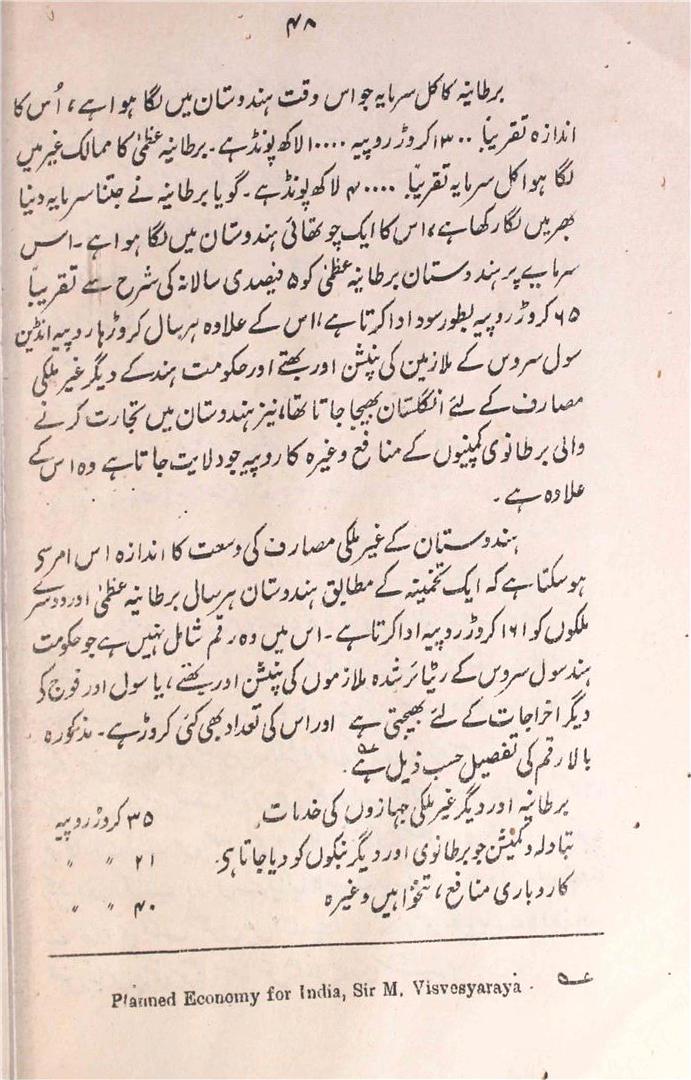 ۴۸
برطانیہ کا کل سرمایہ جو اس وقت ہندوستان میں لگا ہوا ہے، اُس کا
اندازہ تقریباً ۱۳۰۰ کروڑ روپیہ ۱۰۰۰۰ لاکھ پونڈ ہے۔ برطانیہ عظمیٰ کا ممالک غیر میں
لگا ہوا کل سرمایہ تقریباً ۴۰۰۰۰ لاکھ پونڈ ہے۔ گویا برطانیہ نے جتنا سرمایہ دنیا
بھر میں لگا رکھا ہے، اس کا ایک چوتھائی ہندوستان میں لگا ہوا ہے۔ اس
سرمایے پر ہندوستان برطانیہ عظمیٰ کو ۵ فیصدی سالانہ کی شرح سے تقریباً
۶۵ کروڑ روپیہ بطور سود ادا کرتا ہے، اس کے علاوہ ہر سال کروڑہا روپیہ انڈین
سول سروس کے ملازمین کی پنشن اور بھتے اور حکومت ہند کے دیگر غیر ملکی
مصارف کے لئے انگلستان بھیجا جاتا تھا، نیز ہندوستان میں تجارت کرنے
والی برطانوی کمپنیوں کے منافع وغیرہ کا روپیہ جو ولایت جاتا ہے وہ اس کے
علاوہ ہے۔
ہندوستان کے غیر ملکی مصارف کی وسعت کا اندازہ اس امر سے
ہو سکتا ہے کہ ایک تخمینہ کے مطابق ہندوستان ہر سال برطانیہ عظمیٰ اور دوسرے
ملکوں کو ۱۶۱ کروڑ روپیہ ادا کرتا ہے۔ اس میں وہ رقم شامل نہیں ہے جو حکومت
ہند سول سروس کے ریٹائر شدہ ملازموں کی پنشن اور بھتے، یا سول اور فوج کی
دیگر اخراجات کے لئے بھیجتی ہے اور اس کی تعداد بھی کئی کروڑ ہے۔ مذکورہ
بالا رقم کی تفصیل حسب ذیل ہے۔
برطانیہ اور دیگر غیر ملکی جہازوں کی خدمات ۳۵ کروڑ روپیہ
تبادلہ و کمیشن جو برطانوی اور دیگر بنکوں کو دیا جاتا ہے۔ ۲۱ " "
کاروباری منافع، تنخواہیں وغیرہ ۴۰ " "
Planned Economy for India, Sir M. Visvesyaraya